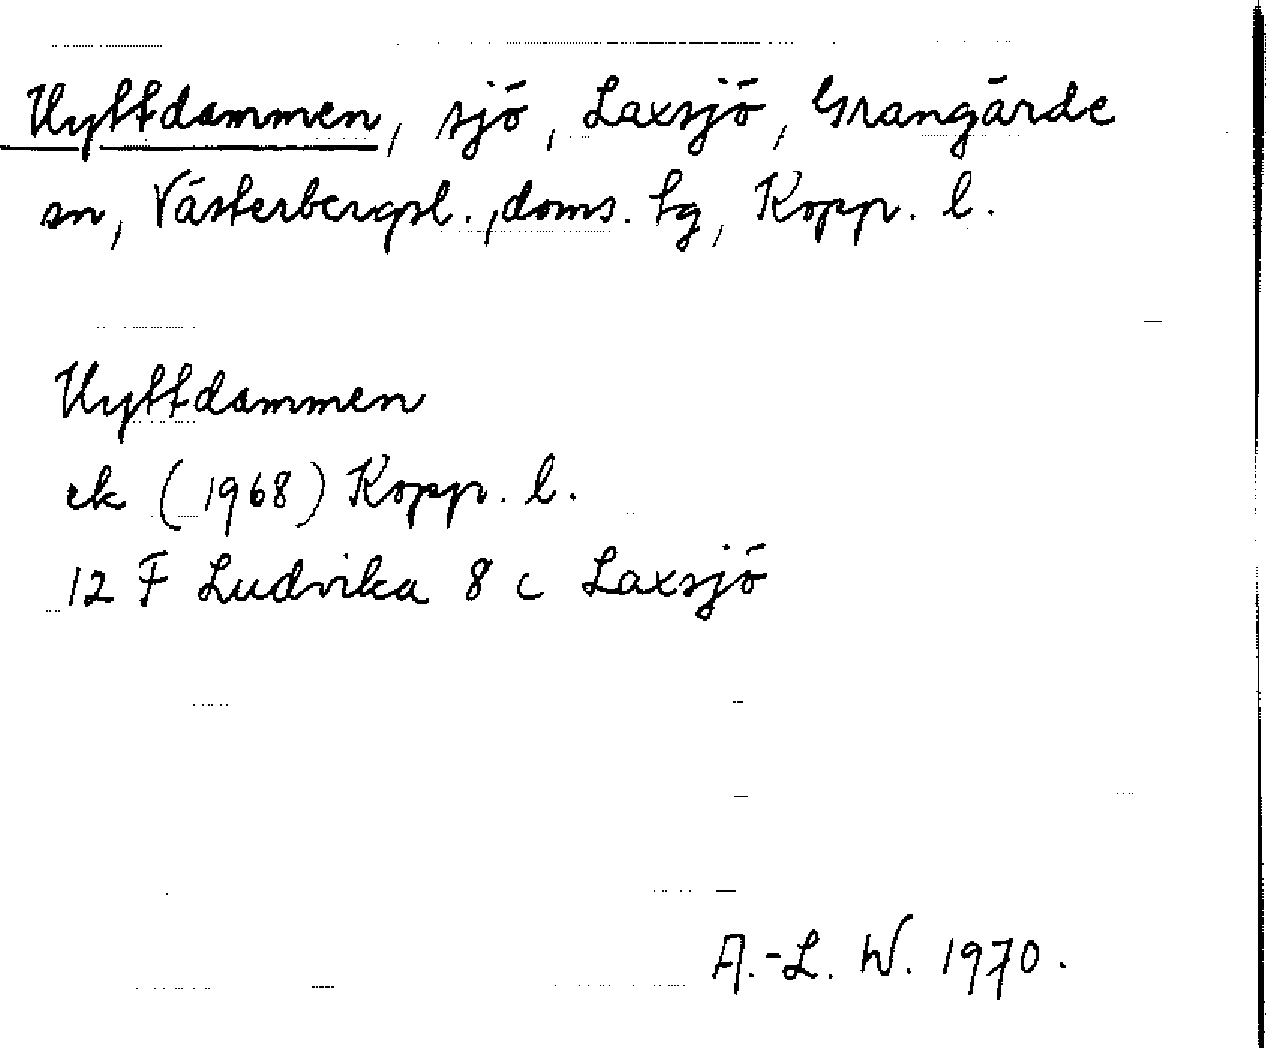 Hyttdammen, sjö, Laxsjö, Grangärde
sn, Västerbergsl., doms. tg, Kopp. l.
Hyttdammen
ek (1968) Kopp. l.
12 F Ludvika 8 c Laxsjö
A.-L. W. 1970.